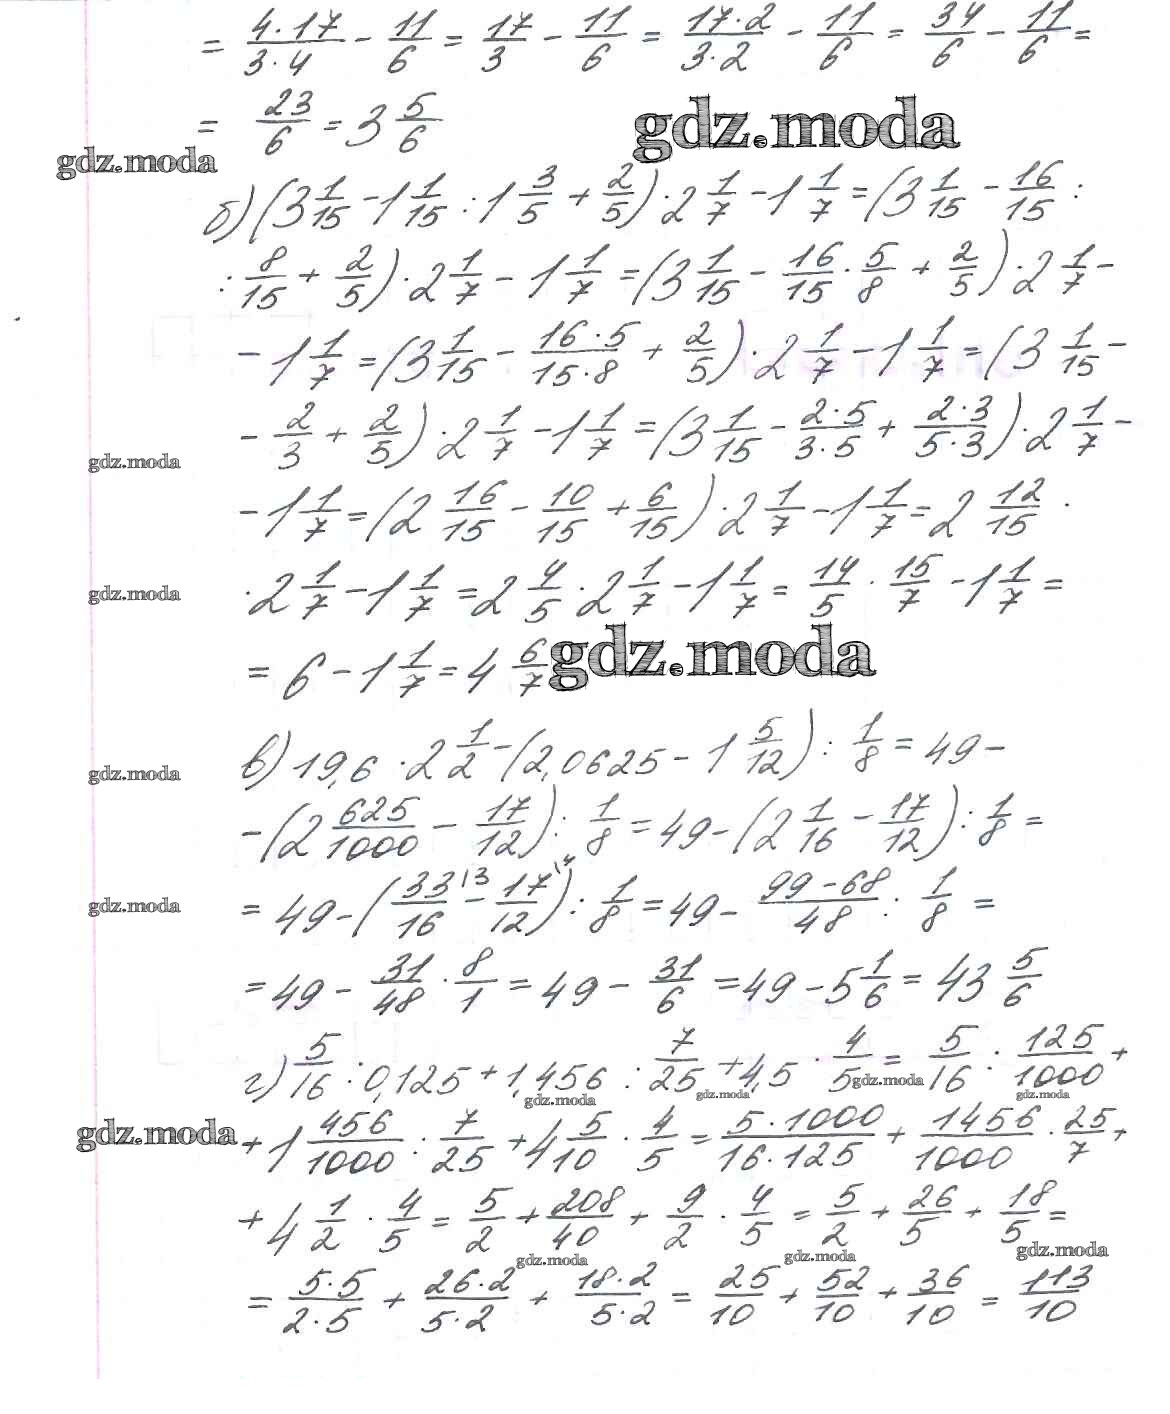 = 4·17/3·4 - 11/6 = 17/3 - 11/6 = 17·2/3·2 - 11/6 = 34/6 - 11/6 =
= 23/6 = 3 5/6
gdz.moda
gdz.moda
б) (3 1/15 - 1 1/15 : 1 3/5 + 2/5) · 2 1/7 - 1 1/7 = (3 1/15 - 16/15 :
: 8/15 + 2/5) · 2 1/7 - 1 1/7 = (3 1/15 - 16/15 · 5/8 + 2/5) · 2 1/7 -
- 1 1/7 = (3 1/15 - 16·5/15·8 + 2/5) · 2 1/7 - 1 1/7 = (3 1/15 -
- 2/3 + 2/5) · 2 1/7 - 1 1/7 = (3 1/15 - 2·5/3·5 + 2·3/5·3) · 2 1/7 -
gdz.moda
- 1 1/7 = (2 16/15 - 10/15 + 6/15) · 2 1/7 - 1 1/7 = 2 12/15 ·
· 2 1/7 - 1 1/7 = 2 4/5 · 2 1/7 - 1 1/7 = 14/5 · 15/7 - 1 1/7 =
gdz.moda
= 6 - 1 1/7 = 4 6/7
gdz.moda
в) 19,6 · 2 1/2 - (2,0625 - 1 5/12) : 1/8 = 49 -
gdz.moda
- (2 625/1000 - 17/12) : 1/8 = 49 - (2 1/16 - 17/12) : 1/8 =
= 49 - (33/16 \3 - 17/12 \4) : 1/8 = 49 - 99-68/48 : 1/8 =
gdz.moda
= 49 - 31/48 · 8/1 = 49 - 31/6 = 49 - 5 1/6 = 43 5/6
г) 5/16 : 0,125 + 1,456 : 7/25 + 4,5 · 4/5 = 5/16 : 125/1000 +
gdz.moda gdz.moda gdz.moda gdz.moda
gdz.moda
+ 1 456/1000 : 7/25 + 4 5/10 · 4/5 = 5·1000/16·125 + 1456/1000 · 25/7 +
+ 4 1/2 · 4/5 = 5/2 + 208/40 + 9/2 · 4/5 = 5/2 + 26/5 + 18/5 =
gdz.moda gdz.moda gdz.moda
= 5·5/2·5 + 26·2/5·2 + 18·2/5·2 = 25/10 + 52/10 + 36/10 = 113/10